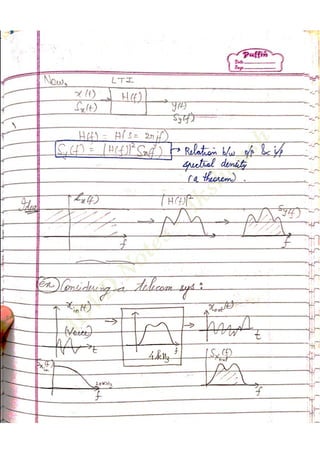 Puffin
Date
Page
Now, LTI
x(t) H(f) y(t)
Sx(f) Sy(f)
H(f) = H(s = 2πjf)
Sy(f) = |H(f)|² Sx(f) → Relation b/w o/p & i/p
spectral density
(a theorem).
Sx(f) |H(f)|² Sy(f)
f f f
Ex Considering a telecom sys:
xin(t) xout(t)
(Voice) t t
4 kHz f
Sxin(f) Sxout(f)
20kHz
f f